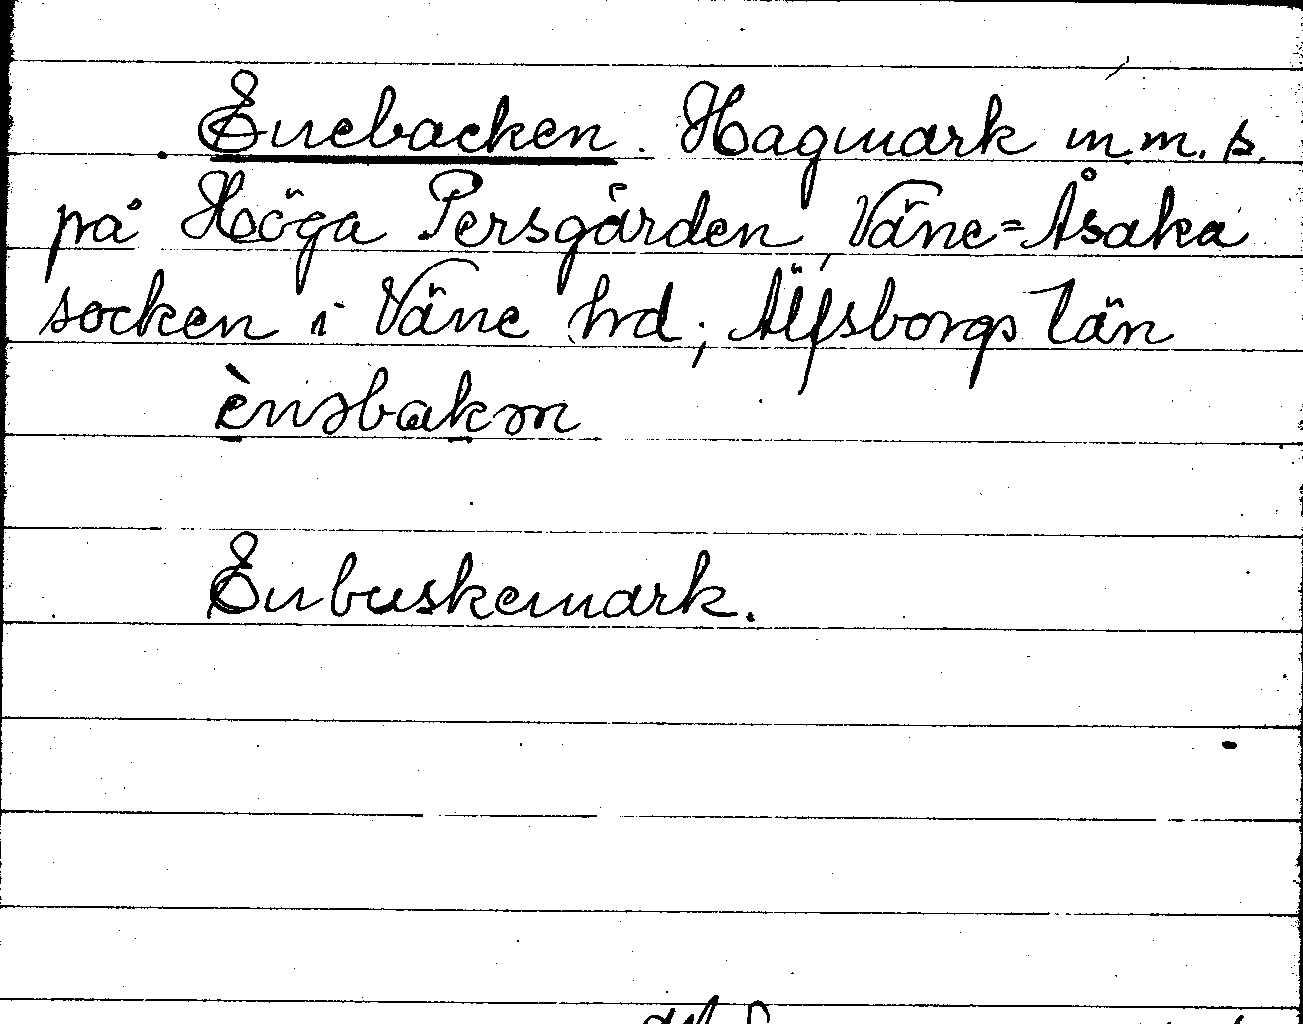 Enebacken. Hagmark m.m. s.
på Höga Persgården, Väne=Åsaka
socken i Väne hrd; Älfsborgs län
ènəbakən
Enbuskemark.